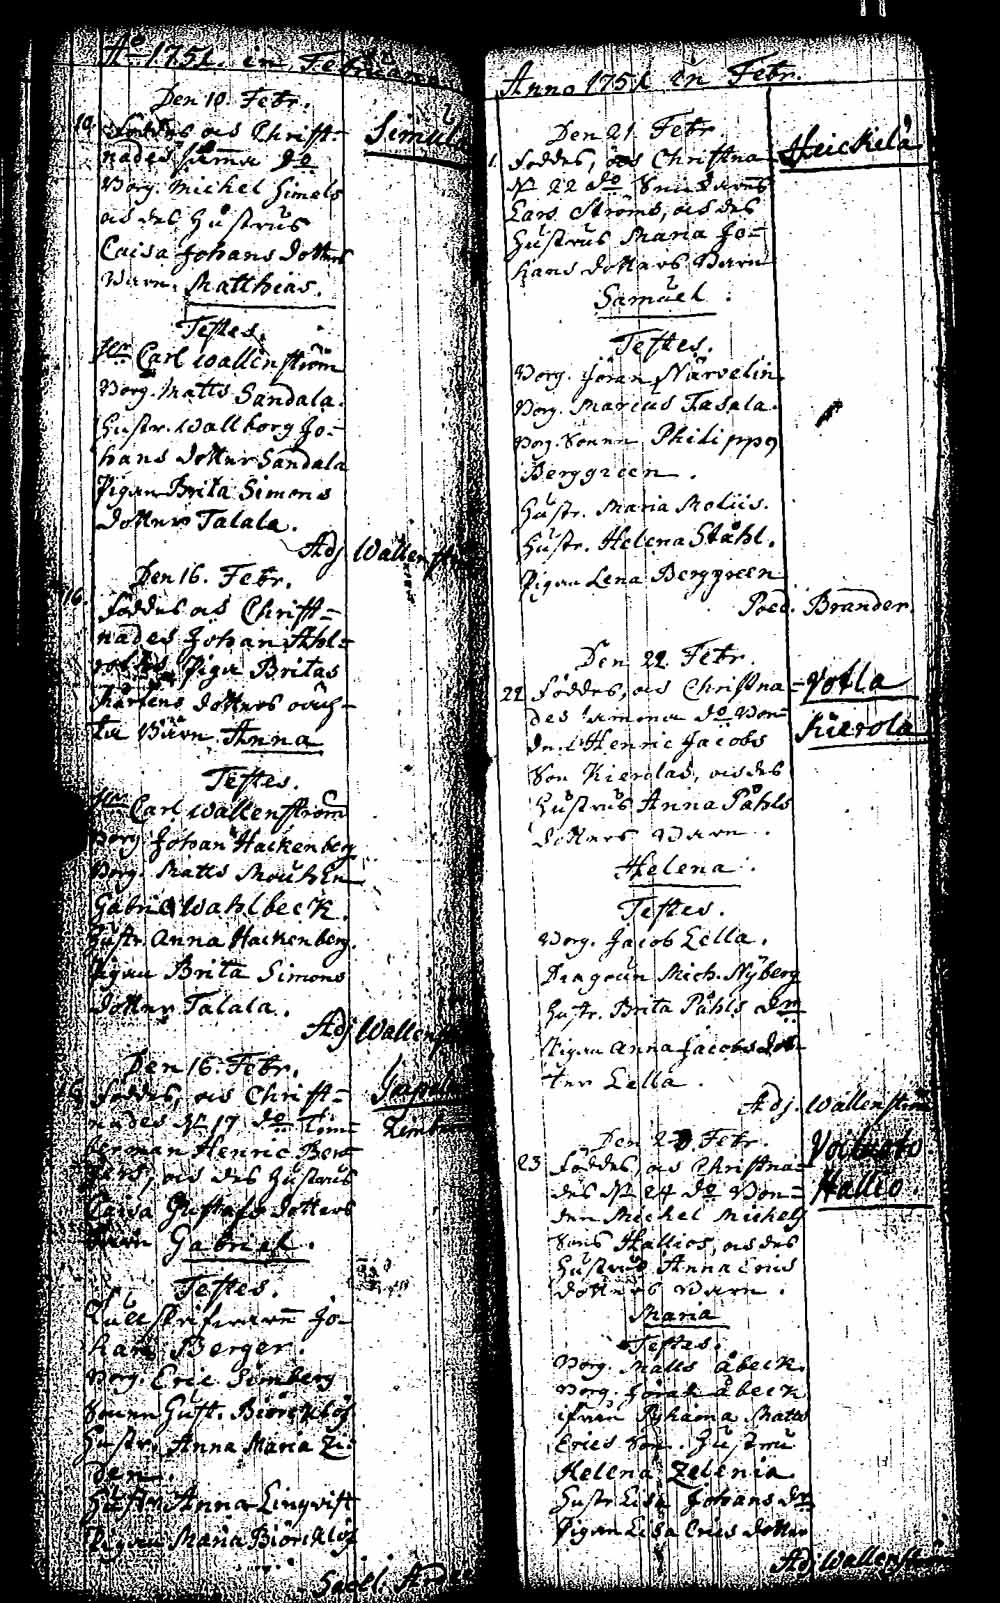 Ao 1751. in Februario
Den 10. Febr.
10. Föddes ocs Christ=
Simula
nades samma do
Borg. Michel Simels
ocs des Hustrus
Caisa Johans dotters
Barn. Matthias.
Testes.
Hr Carl Wallenström
Borg. Matts Sandala.
Hustr. Wallborg Jo=
hans dotter Sandala
Pigan Brita Simons
dotter Talala.
Adj Wallenström
Den 16. Febr.
16. Föddes ocs Christ=
nades Johan Ahl=
Pigu Britas
Mårtens dotters oäch=
ta Barn. Anna
Testes.
Hr Carl Wallenström
Borg Johan Hackenberg
Borg. Matts
Gabriel Wahlbeck.
Hustr. Anna Hackenberg.
Pigan Brita Simons
dotter Talala.
Adj Wallenström
Den 16. Febr.
16 Föddes, ocs Christ=
nades N. 17 do Tim=
berman Henric Ber=
gers, ocs des Hustrus
Caisa Gustafs dotters
Barn Gabriel.
Testes.
Tullskrifwaren Jo=
han Berger.
Borg. Eric Simberg
Sonen Gust. Biörcklöf
Hustr. Anna Maria Zi=
den.
Hustr. Anna Lingvist
Pigan Maria Biörcklöf
Anno 1751 in Febr.
Den 21. Febr.
Föddes, ocs Christna=
Heickelä
N. 22 do
Lars Ströms, ocs des
Hustrus Maria Jo=
hans dotters Barn
Samuel.
Testes.
Borg. Jöran Närvelin.
Borg. Marcus Tasala.
Borg. Sonen Philippg
Berggreen.
Hustr. Maria Moliis.
Hustr. Helena Ståhl.
Pigan Lena Berggreen
Paed. Brander.
Den 22. Febr.
22 Föddes, ocs Christna=
Votla
des samma do Bon=
Kierola
den Henric Jacobs
Son Kierolas, ocs des
Hustrus Anna Påhls
dotters Barn.
Helena.
Testes.
Borg. Jacob Lella.
Dragoun Mich. Nyberg
Hustr. Brita Påhls dr
Pigan Anna Jacobs dot=
ter Lella.
Adj. Wallenström
Den 23. Febr.
23 Föddes, ocs Christna=
des N. 24 do Bon=
Hallio.
den Michel Michels
Sons Hallios, ocs des
Hustrus Anna Erics
dotters Barn.
Maria
Testes.
Borg. Matts Åbeck.
Borg. Jöran Åbeck
ifrån Pyhäma Matts
Erics Son. Hustru
Helena Zelenia
Hustr Lisa Johans dr
Pigan Lisa Erics dotter
Adj Wallenström